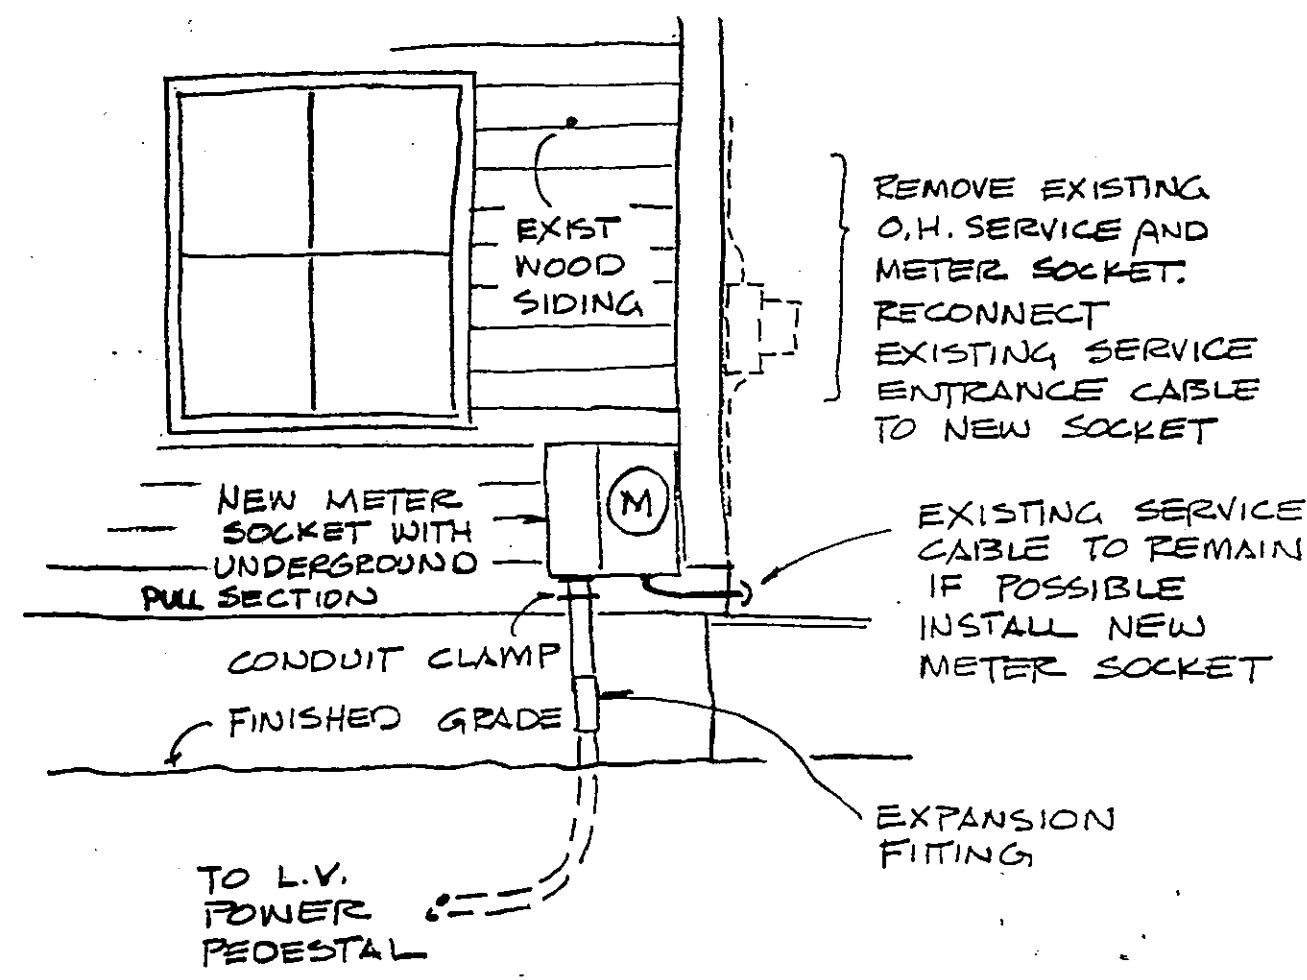 EXIST
WOOD
SIDING
REMOVE EXISTING
O.H. SERVICE AND
METER SOCKET.
RECONNECT
EXISTING SERVICE
ENTRANCE CABLE
TO NEW SOCKET
M
NEW METER
SOCKET WITH
UNDERGROUND
PULL SECTION
EXISTING SERVICE
CABLE TO REMAIN
IF POSSIBLE
INSTALL NEW
METER SOCKET
CONDUIT CLAMP
FINISHED GRADE
EXPANSION
FITTING
TO L.V.
POWER
PEDESTAL